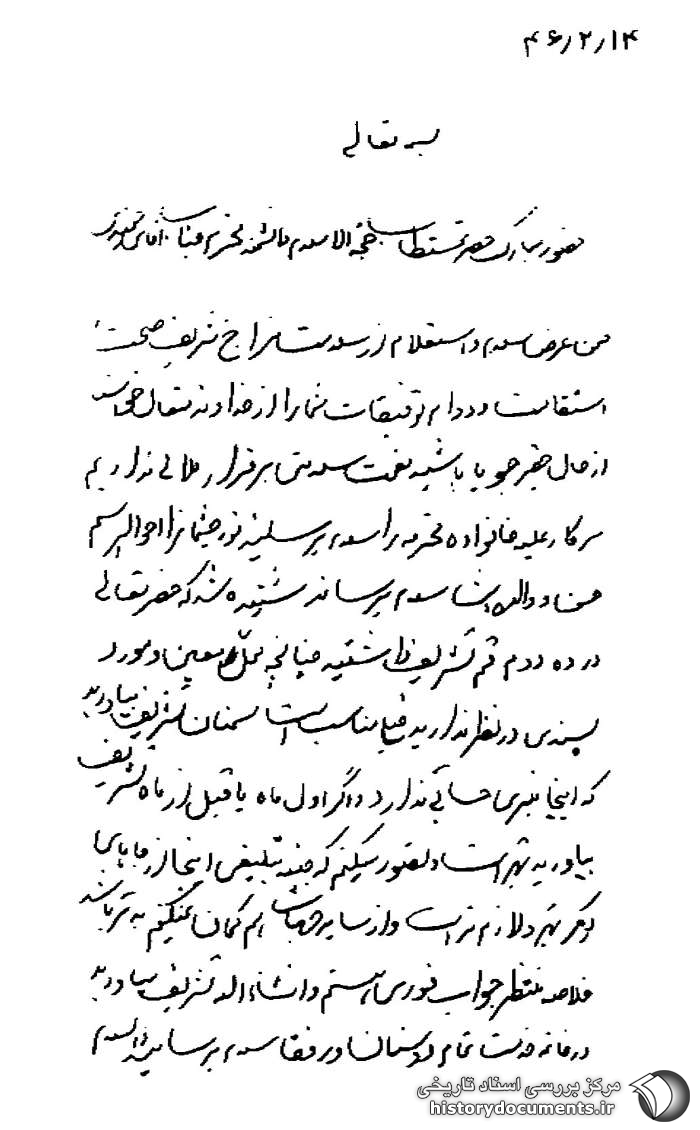 ۴۶/۲/۱۴
بسمه تعالی
حضور مبارک حضرت مستطاب حجة الاسلام دانشمند محترم جناب آقای
ضمن عرض سلام و استعلام از سلامت مزاج شریف صحت و
استقامت و دوام توفیقات شما را از خداوند متعال خواهانم
از حال حقیر جویا باشید نعمت سلامتی برقرار ملالی نداریم
سرکار علیه خانواده محترمه را سلام میرسانم نورچشمانرا احوالپرسم
ضمنا والده ایشان سلام میرساند شنیده شد که حضرتعالی
در ده دوم قم تشریف داشتید چنانچه محل معین و مورد
پسندی در نظر ندارید خیلی مناسب است سمنان تشریف بیاورید
که اینجا منبری حسابی ندارد و اگر اول ماه یا قبل از ماه تشریف
بیاورید بهتر است و تصور میکنم که جنبه تبلیغی اینجا از جاهای
دیگر بهتر و لازم تر است و از سایر جهات هم گمان نمیکنم بدتر باشد
خلاصه منتظر جواب فوری هستم و انشاء الله تشریف بیاورید
در خاتمه خدمت تمام دوستان و رفقا سلام برسانید والسلام
مرکز بررسی اسناد تاریخی
historydocuments.ir